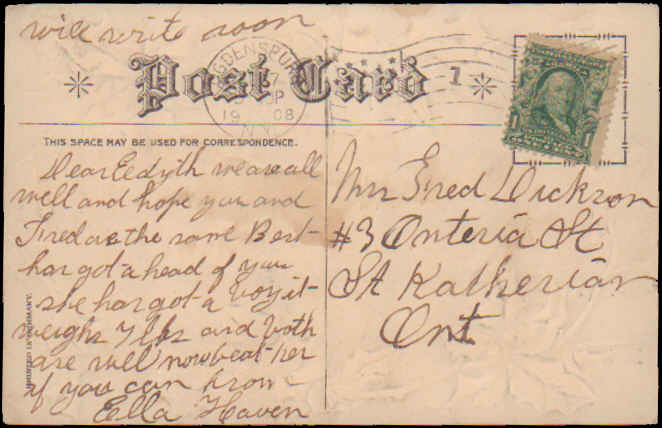 will write soon
OGDENSBURG
7
P
1908
N.Y.
Post Card
1
THIS SPACE MAY BE USED FOR CORRESPONDENCE.
Dear Eedyth we are all
well and hope you and
Fred are the same Bert-
has got a head of you
she has got a boy it
weighs 7 lbs and both
are well now beat her
if you can from
Ella Haven
Mrs Fred Dickson
#3 Onteria St
St Katherian
Ont
1
1